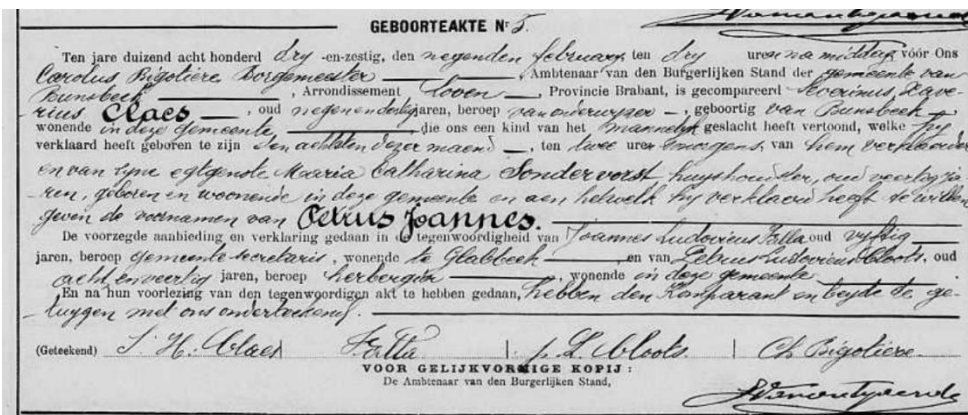 GEBOORTEAKTE Nr 5.
Ten jare duizend acht honderd dry -en-zestig, den negenden february ten dry uren na middag vóór Ons
Carolus Bigolière Borgemeester, Ambtenaar van den Burgerlijken Stand der gemeente van
Bunsbeek, Arrondissement Loven, Provincie Brabant, is gecompareerd Severinus Xave-
rius Claes, oud negenendertig jaren, beroep van onderwyser, geboortig van Bunsbeek
wonende in deze gemeente, die ons een kind van het mannelyk geslacht heeft vertoond, welke hy
verklaard heeft geboren te zijn den achtsten dezer maend, ten twee uren smorgens, van hem verklaerder
en van zyne egtgenote Maria Catharina Sondervorst huyshoudster, oud veertig ja-
ren, geboren en woonende in deze gemeente en aen hetwelk hy verklaard heeft te willen
geven de voornamen van Petrus Joannes.
De voorzegde aanbieding en verklaring gedaan in de tegenwoordigheid van Joannes Ludovicus oud vyftig
jaren, beroep gemeente secretaris, wonende te Glabbeek, en van Petrus Ludovicus Cloots, oud
acht en veertig jaren, beroep herbergier, wonende in deze gemeente
En na hun voorlezing van den tegenwoordigen akt te hebben gedaan, hebben den Komparant en beyde de ge-
tuygen met ons onderteekend.
(Geteekend) S. H. Claes p. L. Cloots. Ch Bigolière.
VOOR GELIJKVORMIGE KOPIJ :
De Ambtenaar van den Burgerlijken Stand,